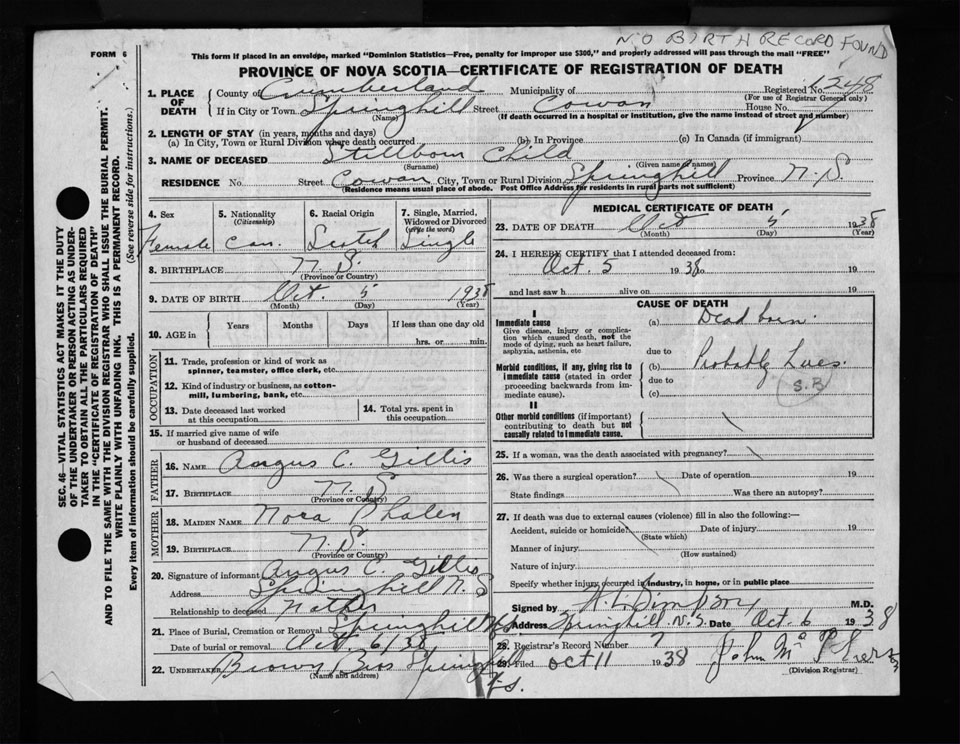 NO BIRTH RECORD FOUND
FORM 6
This form if placed in an envelope, marked "Dominion Statistics—Free, penalty for improper use $300," and properly addressed will pass through the mail "FREE"
PROVINCE OF NOVA SCOTIA—CERTIFICATE OF REGISTRATION OF DEATH
1. PLACE OF DEATH
County of Cumberland Municipality of Registered No. 1248
(For use of Registrar General only)
If in City or Town Springhill Street Cowan House No.
(Name) (If death occurred in a hospital or institution, give the name instead of street and number)
2. LENGTH OF STAY (in years, months and days)
(a) In City, Town or Rural Division where death occurred (b) In Province (c) In Canada (if immigrant)
3. NAME OF DECEASED Stillborn Child
(Surname) (Given name or names)
RESIDENCE No. Street Cowan City, Town or Rural Division Springhill Province N.S.
(Residence means usual place of abode. Post Office Address for residents in rural parts not sufficient)
4. Sex
Female
5. Nationality
(Citizenship)
Can.
6. Racial Origin
Scotch
7. Single, Married, Widowed or Divorced
(write the word)
Single
8. BIRTHPLACE N.S.
(Province or Country)
9. DATE OF BIRTH Oct. 5 1938
(Month) (Day) (Year)
10. AGE in
Years Months Days If less than one day old
hrs. or min.
OCCUPATION
11. Trade, profession or kind of work as
spinner, teamster, office clerk, etc.
12. Kind of industry or business, as cotton-
mill, lumbering, bank, etc.
13. Date deceased last worked
at this occupation
14. Total yrs. spent in
this occupation
15. If married give name of wife
or husband of deceased
FATHER
16. NAME Angus C. Gillis
17. BIRTHPLACE N.S.
(Province or Country)
MOTHER
18. MAIDEN NAME Nora Phalen
19. BIRTHPLACE N.S.
(Province or Country)
20. Signature of informant Angus C. Gillis
Address Springhill N.S
Relationship to deceased Father
21. Place of Burial, Cremation or Removal Springhill N.S.
Date of burial or removal Oct. 6/38
22. UNDERTAKER Brown Bros Springhill
N.S.
(Name and address)
MEDICAL CERTIFICATE OF DEATH
23. DATE OF DEATH Oct 5 1938
(Month) (Day) (Year)
24. I HEREBY CERTIFY that I attended deceased from:
Oct. 5 1938 to 19
and last saw h alive on 19
CAUSE OF DEATH
I
Immediate cause
Give disease, injury or complication which caused death, not the mode of dying, such as heart failure, asphyxia, asthenia, etc
(a) Dead born.
due to
Morbid conditions, if any, giving rise to immediate cause (stated in order proceeding backwards from immediate cause).
(b) Probably Lues.
due to
S.B
(c)
II
Other morbid conditions (if important) contributing to death but not causally related to immediate cause.
25. If a woman, was the death associated with pregnancy?
26. Was there a surgical operation? Date of operation 19
State findings Was there an autopsy?
27. If death was due to external causes (violence) fill in also the following:—
Accident, suicide or homicide? Date of injury 19
(State which)
Manner of injury
(How sustained)
Nature of injury
Specify whether injury occurred in industry, in home, or in public place
Signed by H. L. Simpson M.D.
Address Springhill N.S. Date Oct. 6 1938
28. Registrar's Record Number 7
29. Filed Oct 11 1938
(Division Registrar)
SEC. 46—VITAL STATISTICS ACT MAKES IT THE DUTY
OF THE UNDERTAKER OR PERSON ACTING AS UNDER-
TAKER TO OBTAIN ALL THE PARTICULARS REQUIRED
IN THE "CERTIFICATE OF REGISTRATION OF DEATH"
AND TO FILE THE SAME WITH THE DIVISION REGISTRAR WHO SHALL ISSUE THE BURIAL PERMIT.
WRITE PLAINLY WITH UNFADING INK. THIS IS A PERMANENT RECORD.
Every item of information should be carefully supplied. (See reverse side for instructions.)